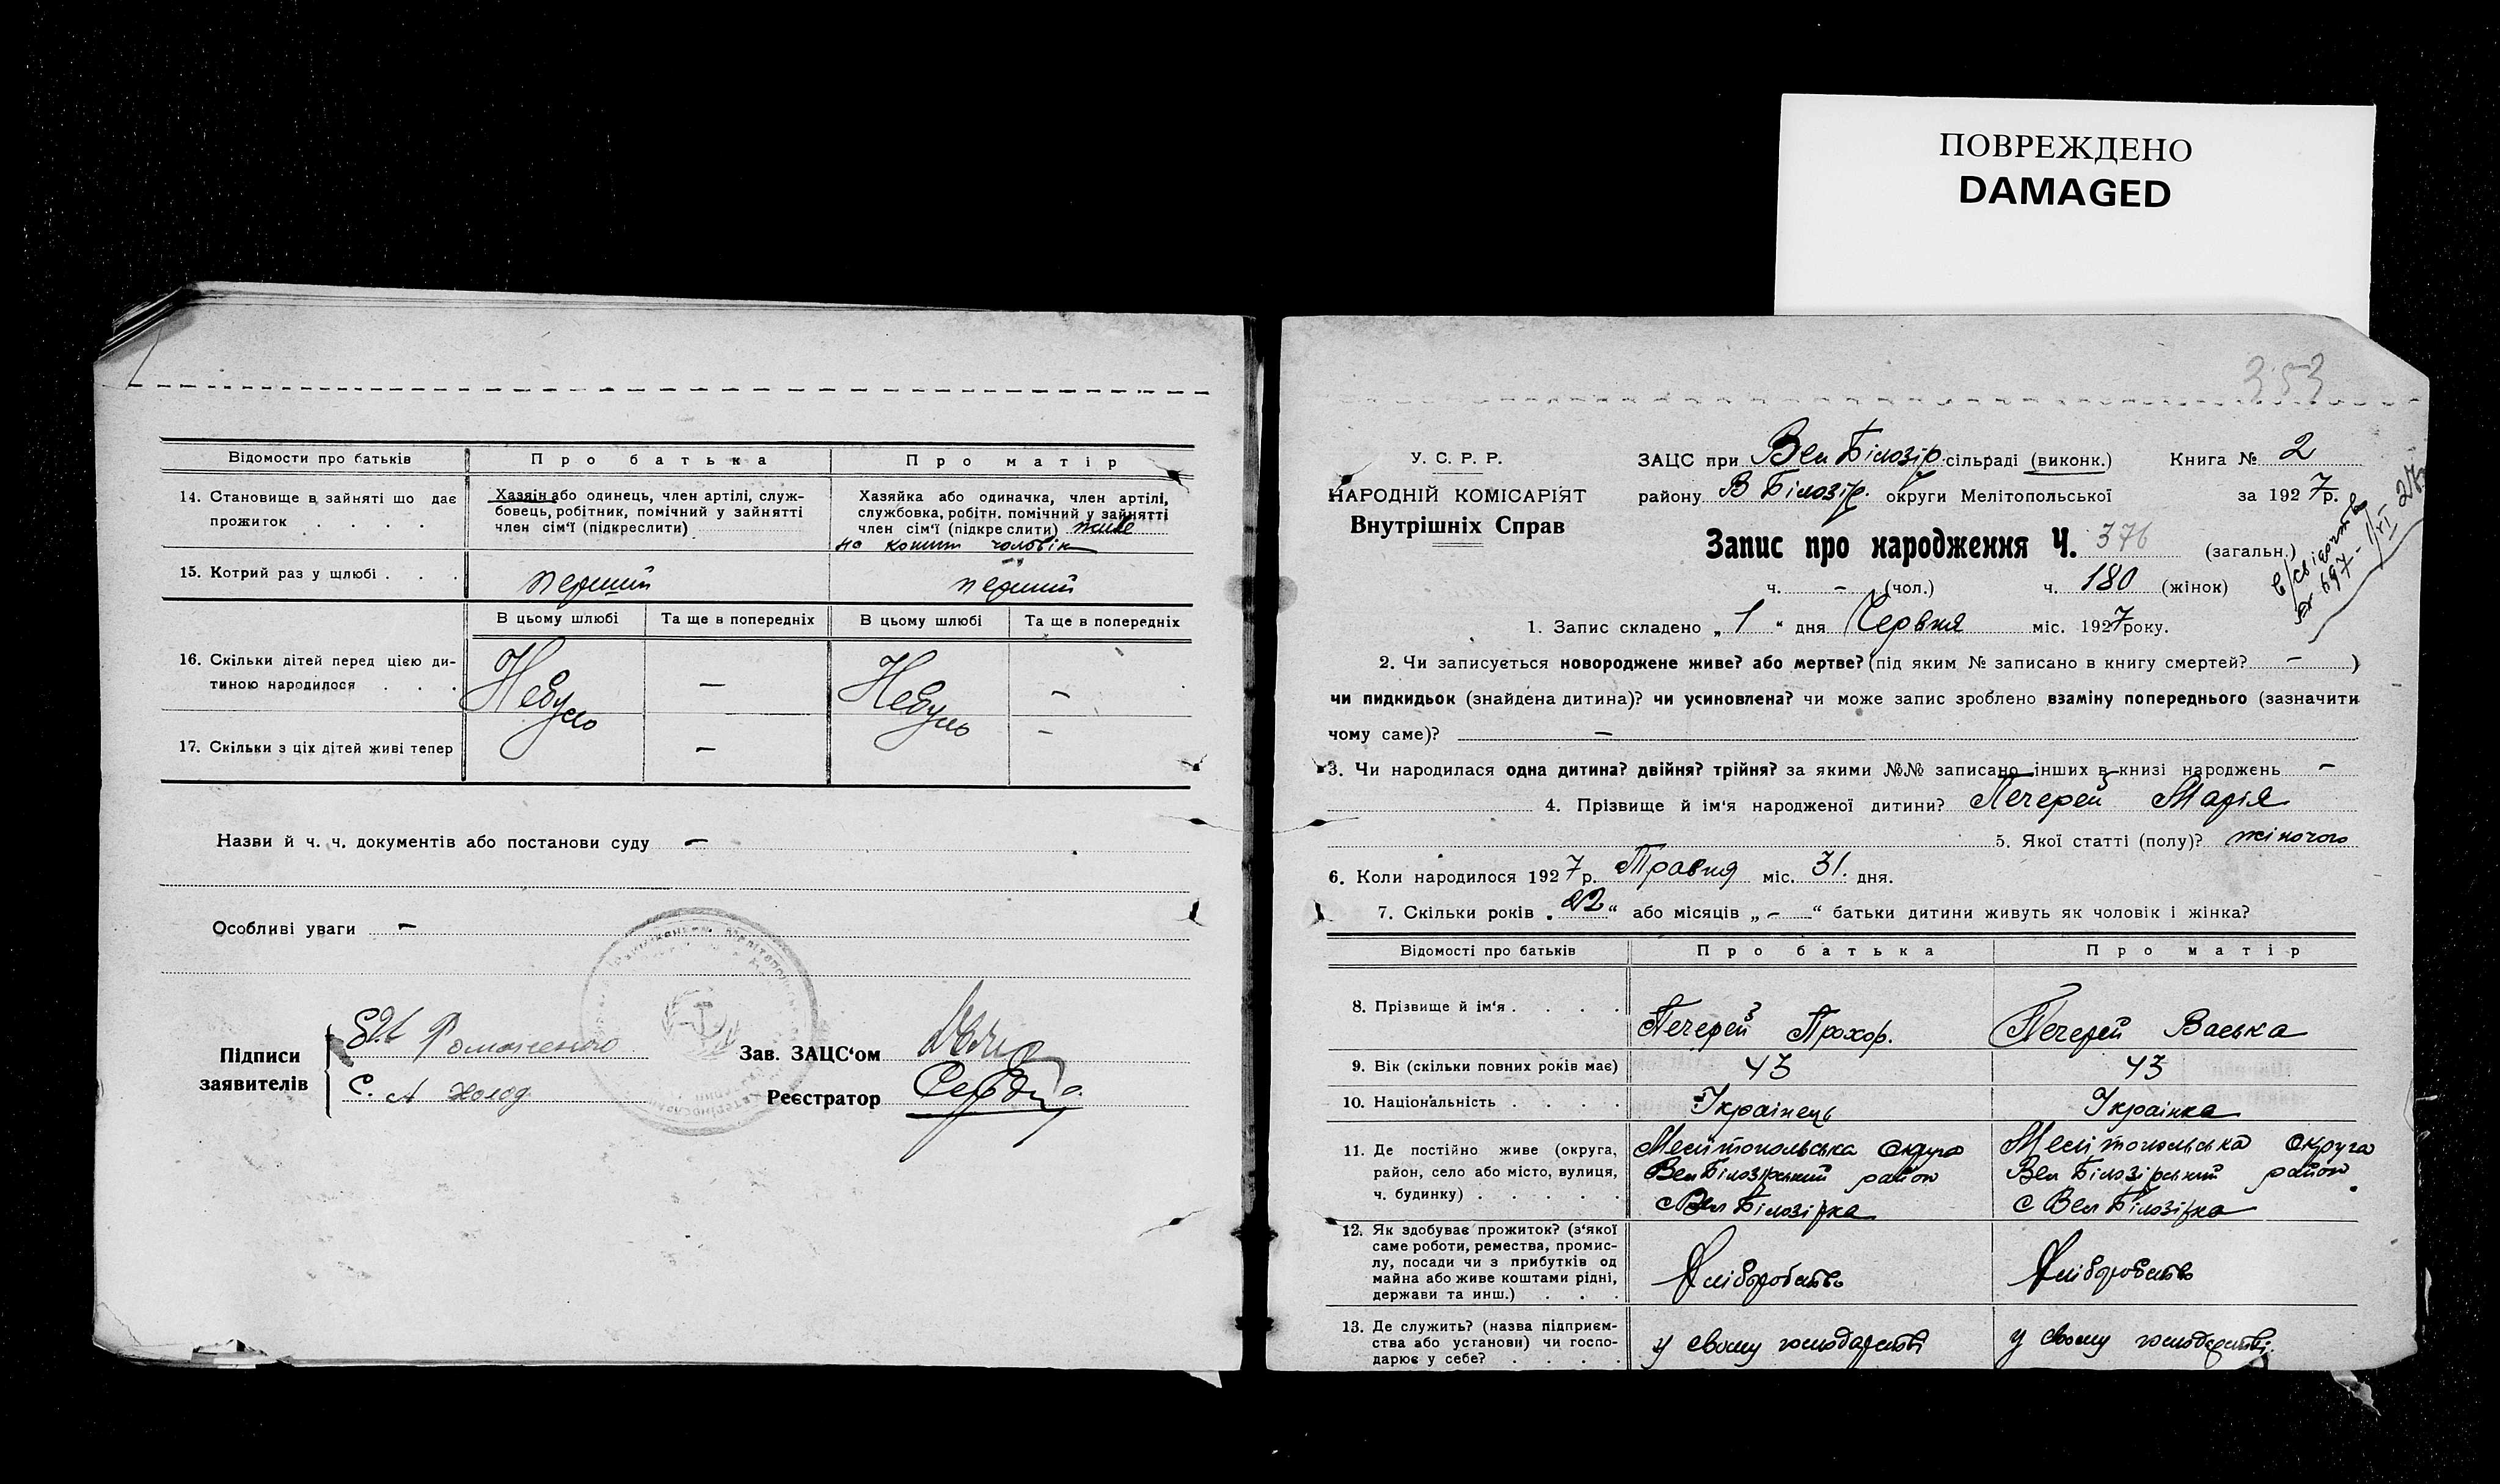 ПОВРЕЖДЕНО
DAMAGED
Відомости про батьків
Про батька
Про матір
14. Становище в зайняті що дає
прожиток . . . .
Хазяін або одинець, член артілі, служ-
бовець, робітник, помічний у зайнятті
член сім'ї (підкреслити)
Хазяйка або одиначка, член артілі,
службовка, робітн. помічний у зайнятті
член сім'ї (підкреслити) живе
на кошти чоловік
15. Котрий раз у щлюбі . . .
перший
перший
В цьому шлюбі
Та ще в попередніх
В цьому шлюбі
Та ще в попередніх
16. Скільки дітей перед цією ди-
тиною народилося . . .
Небуло
—
Небуло
—
17. Скільки з ціх дітей живі тепер
—
—
Назви й ч. ч. документів або постанови суду —
Особливі уваги —
Підписи
заявителів
Романенко
С. А Холод
Зав. ЗАЦС'ом
Реєстратор
353
У. С. Р. Р.
НАРОДНІЙ КОМІСАРІЯТ
Внутрішніх Справ
ЗАЦС при Вел Білозір. сільраді (виконк.) Книга № 2
району В Білозір. округи Мелітопольської за 1927р.
Запис про народження Ч. 376 (загальн.)
ч. – (чол.) ч. 180 (жінок)
свідоцтво
1. Запис складено „1“ дня Червня міс. 1927 року.
2. Чи записується новороджене живе? або мертве? (під яким № записано в книгу смертей? – )
чи пидкидьок (знайдена дитина)? чи усиновлена? чи може запис зроблено взаміну попереднього (зазначити
чому саме)? –
3. Чи народилася одна дитина? двійня? трійня? за якими №№ записано інших в книзі народжень –
4. Прізвище й ім'я народженої дитини? Печерей Марія
5. Якої статті (полу)? жіночого
6. Коли народилося 1927 р. Травня міс. 31. дня.
7. Скільки років „22“ або місяців „–“ батьки дитини живуть як чоловік і жінка?
Відомості про батьків
Про батька
Про матір
8. Прізвище й ім'я . . . .
Печерей Прохор.
Печерей Васька
9. Вік (скільки повних років має)
43
43
10. Національність . . . .
Українець
Українка
11. Де постійно живе (округа,
район, село або місто, вулиця,
ч. будинку) . . . . .
Мелітопольська округа
Вел Білозірський район
с Вел Білозірка
Мелітопольська округа
Вел Білозірський район
с Вел Білозірка
12. Як здобуває прожиток? (з'якої
саме роботи, ремества, промис-
лу, посади чи з прибутків од
майна або живе коштами рідні,
держави та инш.) . . .
Хліборобство
Хліборобство
13. Де служить? (назва підприєм-
ства або установи) чи госпо-
дарює у себе? . . . .
у свому господарстві
у свому господарстві.